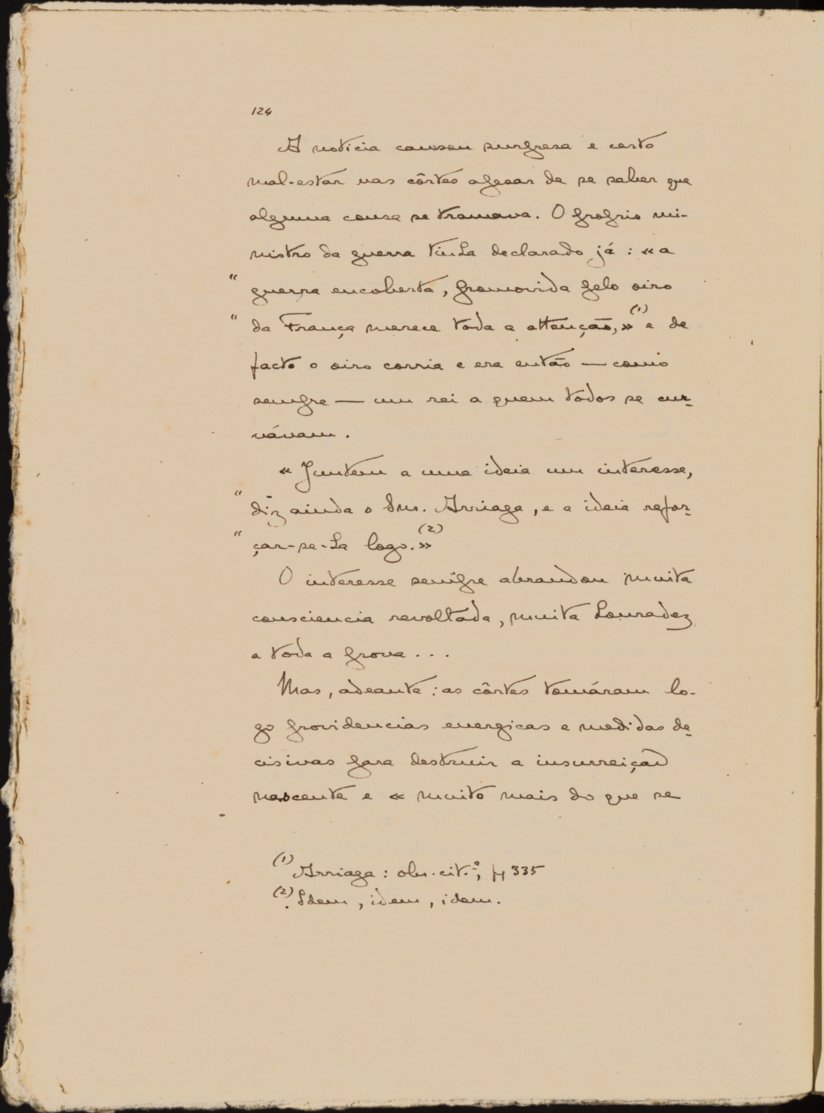 124
A noticia causou surpresa e certo
mal-estar nas côrtes apesar de se saber que
alguma cousa se tramava. O proprio mi-
nistro da guerra tinha declarado já : « a
" guerra encoberta, promovida pelo oiro
" da França merece toda a attenção, » (1) e de
facto o oiro corria e era então — como
sempre — um rei a quem todos se cur-
vávam.
« Juntem a uma ideia um interesse,
" diz ainda o Snr. Arriaga, e a ideia refor-
" çar-se-ha logo. » (2)
O interesse sempre abrandou muita
consciencia revoltada, muita honradez
a toda a prova . . .
Mas, adeante : as côrtes tomáram lo-
go providencias energicas e medidas de-
cisivas para destruir a insurreição
nascente e « muito mais do que se
(1) Arriaga : obr. cit.ª, pg 335
(2) Idem, idem, idem.